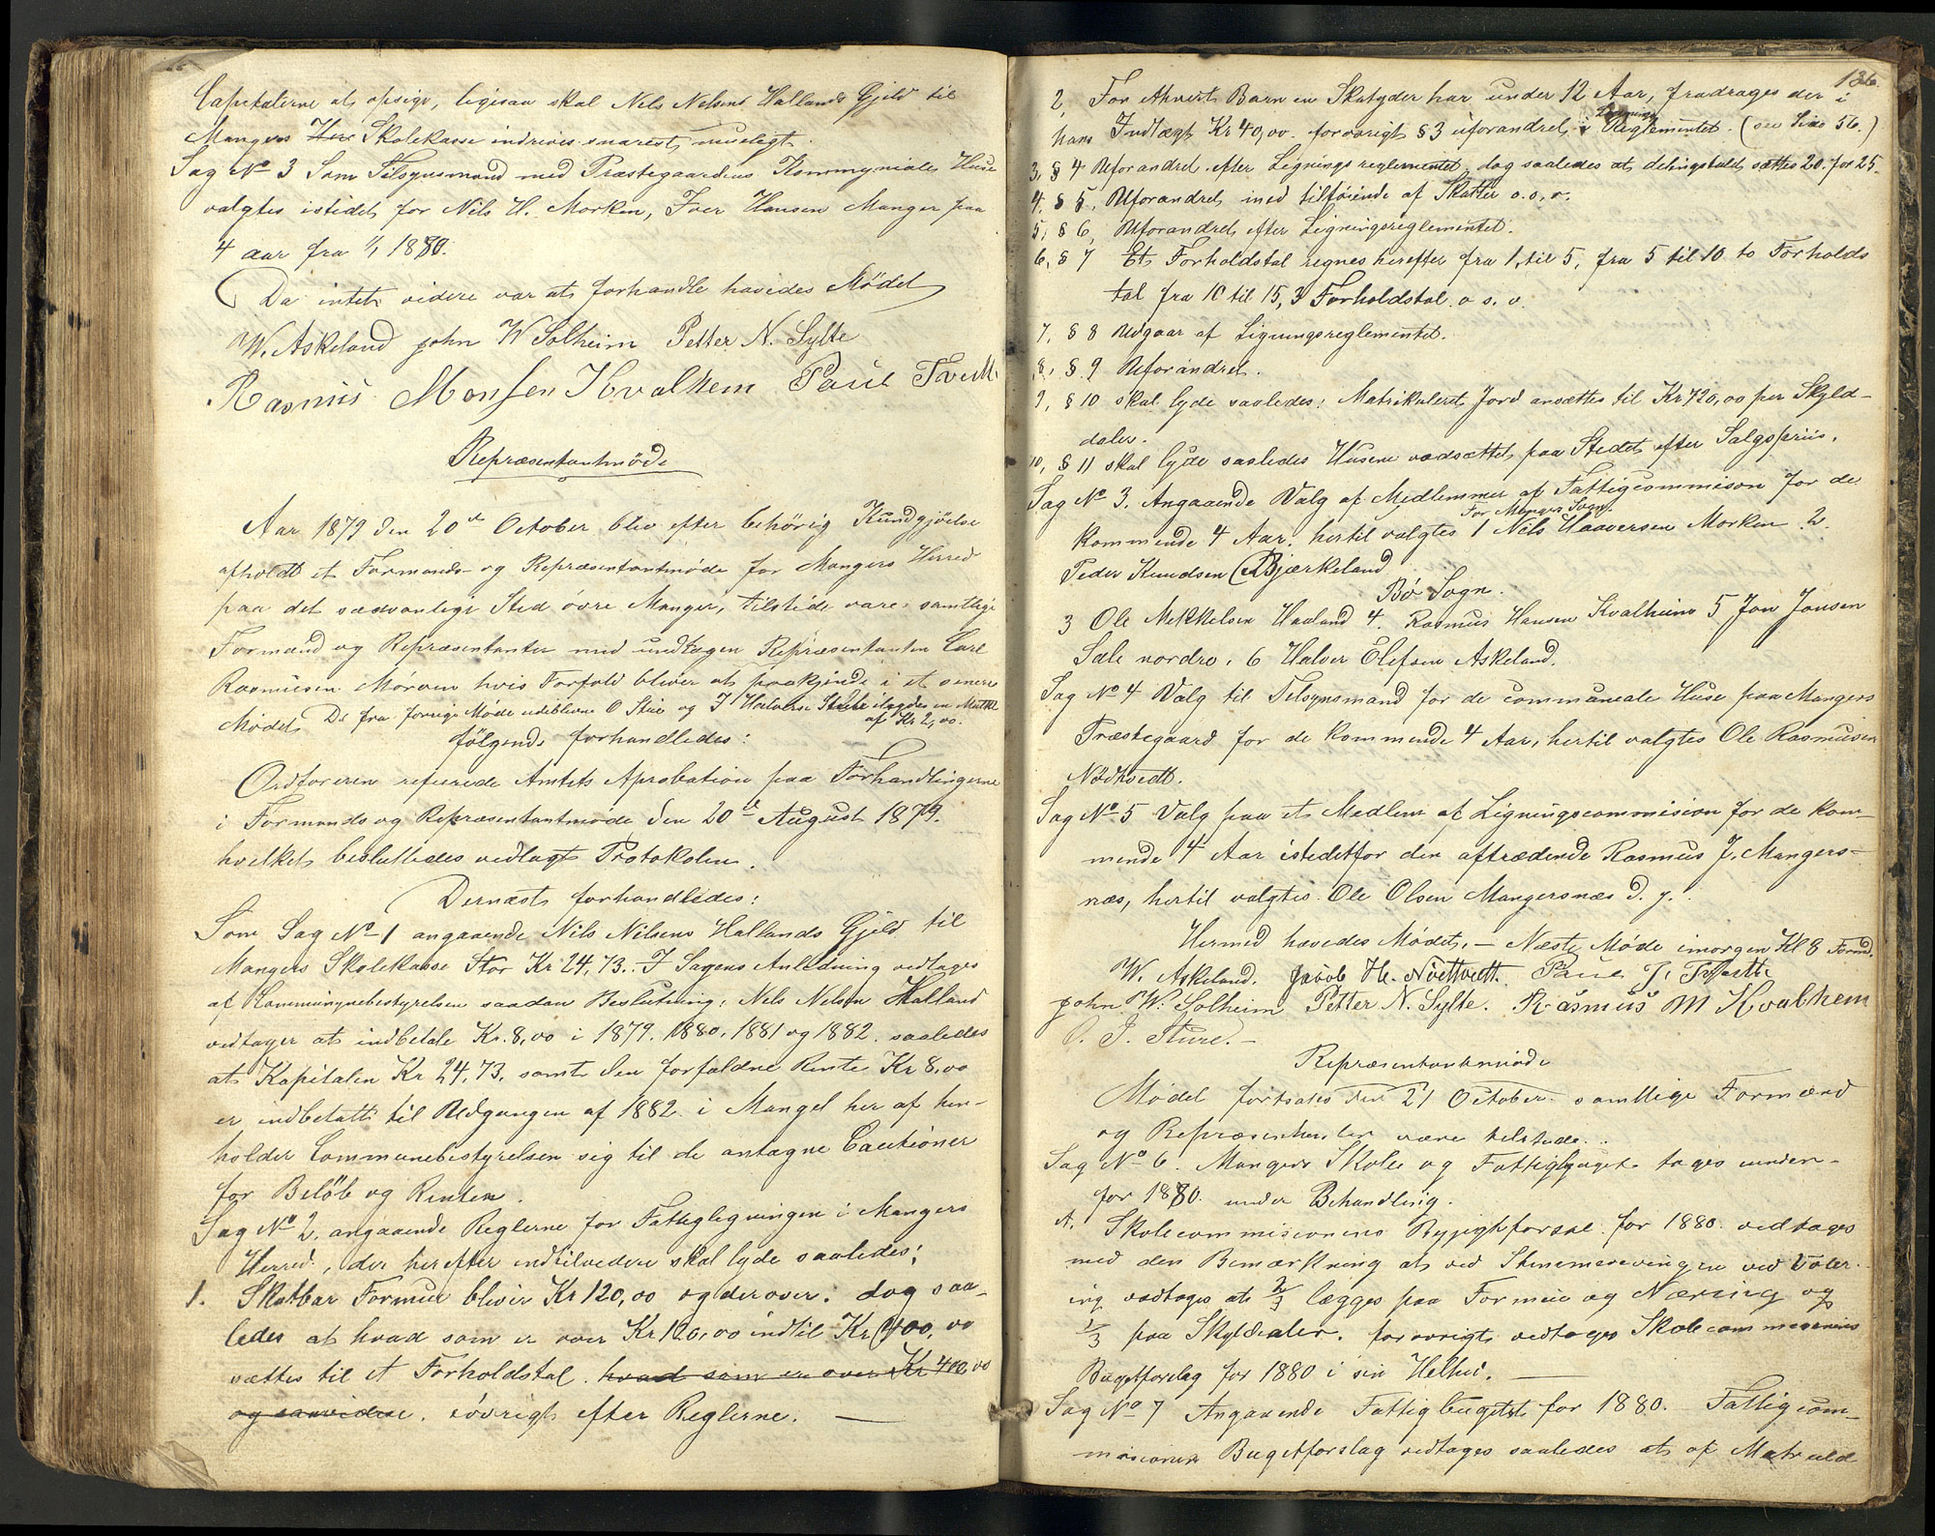 Capitalerne at opsige, ligesaa skal Nils Nelsens Hallands Gjeld til
Mangers Skolekasse indrives snarest mueligt.
Sag No 3 Som Tilsynsmand med Præstegaardens Kommuniale Huse
valgtes istedet for Nils H. Morken, Iver Hansen Manger paa
4 aar fra 1/1 1880.
Da intet videre var at forhandle hævedes Mødet
W. Askeland John W Solheim Petter N. Sylte
Rasmus Monsen Kvalhem Paul
Repræsentantmöde
Aar 1879 den 20de October blev efter behörig Kundgjörelse
afholdt et Formands- og Repræsentantmöde for Mangers Herred
paa det sædvanlige Sted övre Manger, tilstede vare samtlige
Formænd og Repræsentanter med undtagen Repræsentanten Carl
Rasmusen Mörven hvis Forfald bliver at paakjende i et senere
Mødet De fra forrige Møde udeblevne O Sture og I Halvorsen ilagdes en Mulkt
af Kr 2,00.
fölgende forhandledes:
Ordföreren refererede Amtets Aprobation paa Forhandlingerne
i Formands og Repræsentantmöde den 20de August 1879.
hvilket besluttedes vedlagt Protokolen.
Dernæst forhandledes:
Som Sag No 1 angaaende Nils Nilsens Hallands Gjeld til
Mangers Skolekasse Stor Kr 24,73. I Sagens Anledning vedtages
af Kommunynebestyrelsen saadan Beslutning: Nels Nelsen Halland
vedtager at indbetale Kr. 8,00 i 1879. 1880, 1881 og 1882. saaledes
at Kapitalen Kr 24,73. samt den forfaldne Rente Kr 8,00
er indbetalt til Udgangen af 1882. i Mangel her af hen-
holder Communebestyrelsen sig til de antagne Cautioner
for Belöb og Renten.
Sag No 2. angaaende Reglerne for Fattiglegningen i Mangers
Herred, der herefter indtilvedere skal lyde saaledes:
1. Skatbar Formue bliver Kr 120,00 og derover: dog saa-
ledes at hvad som er over Kr 120,00 indtil Kr 400,00
sættes til et Forholdstal. hvad som er over Kr 400,00
og saavidere. iövrigt efter Reglerne. —
136.
2 For ethvert Barn en Skatyder har under 12 Aar, fradrages der i
hans Indtægt Kr 40,00. forövrigt § 3 uforandret i Lignings Reglementet. (see Side 56.)
3, § 4 Uforandret efter Ligningsreglementet, dog saaledes at delingstalet sættes 20 for 25.
4, § 5, Uforandret med tilföiende af Skatter o.s.v.
5, § 6, Uforandret efter Ligningsreglementet.
6, § 7 Et Forholdstal regnes herefter fra 1 til 5, fra 5 til 10 to Forholds
tal fra 10 til 15, 3 Forholdstal o s. v.
7, § 8 Udgaar af Ligningsreglementet.
8, § 9 Uforandret.
9, § 10 skal lyde saaledes: Matrikuleret Jord ansættes til Kr 720,00 per Skyld-
daler.
10, § 11 skal lyde saaledes Husene værdsættet paa Stedet efter Salgspriis.
Sag No 3. Angaaende Valg af Medlemmer af Fattigcommison for de
kommende 4 Aar. hertil valgtes For Manger Sogn 1 Nils Haaversen Morken 2.
Peder Knudsen Bjærkeland
Bø Sogn.
3 Ole Mikkelsen Havland 4. Rasmus Hansen Kvalheim 5 Jon Jonsen
Sæle nordre. 6 Halvor Elefsen Askeland.
Sag No 4 Valg til Tilsynsmand for de communeale Huse paa Mangers
Præstegaard for de kommende 4 Aar, hertil valgtes Ole Rasmusen
Nödtvedt.
Sag No 5 Valg paa et Medlem af Ligningscommision for de kom-
mende 4 Aar istedetfor den aftrædende Rasmus J. Mangers-
næs, hertil valgtes Ole Olsen Mangersnæs d. y.
Hermed hævedes Mødet. — Næste Møde imorgen Kl 8 Formd.
W. Askeland. Jacob H. Nöttvedt. Paul J.
John W. Solheim Petter N. Sylte. Rasmus M Kvalhem
O. J. Sture. —
Repræsentantmöde
Mødet fortsattes den 21 October. samtlige Formænd
og Repræsentanter vare tilstede.
Sag No 6. Mangers Skole og Fattigbuget tages under
for 1880. under Behandling.
A. Skolecommisionens Bygjetforslag for 1880. vedtages
med den Bemærkning at ved
vedtages at 2/3 lægges paa Formue og Næring og
1/3 paa Skyldaler. forövrigt vedtages Skolecommisionens
Bugetforslag for 1880 i sin Helhed. —
Sag No 7 Angaaende Fattigbugetet for 1880. Fattigcom-
misionens Bugetforslag vedtages saaledes at af